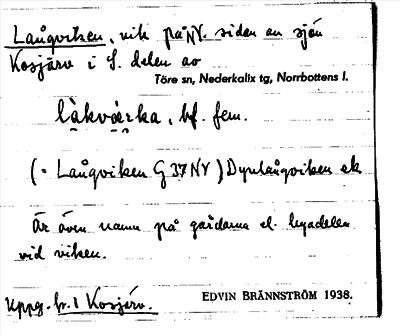 Långviken, vik på NV. sidan av sjön
Kosjärv i S. delen av
Töre sn, Nederkalix tg, Norrbottens l.
làkvǽrka, bf. fem.
(= Långviken G 37 NV) Djuplångviken ek
Är även namn på gårdarna el. byadelen
vid viken.
Uppg. br. 1 Kosjärv. EDVIN BRÄNNSTRÖM 1938.